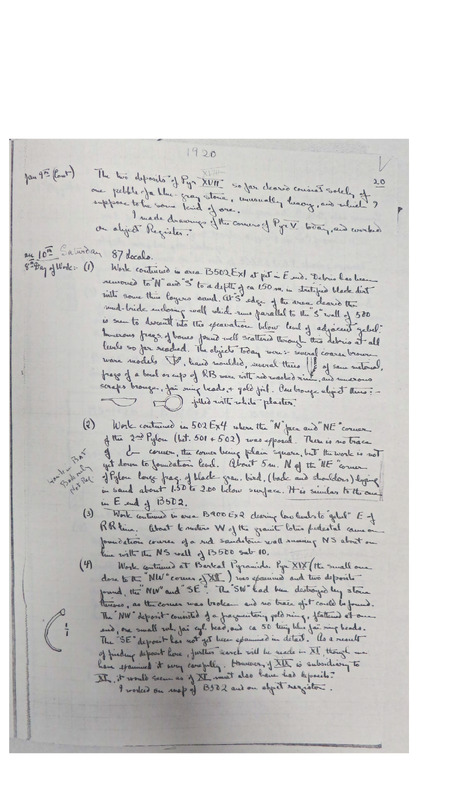 1920
20
Jan 9th (Cont) The two deposits of Pyr. XVIII so far cleared consist solely of
one pebble of a blue-gray stone, unusually heavy, and which I
suppose to be some kind of ore.
I made drawings of the corners of Pyr. V today, and worked
on Object Register.
Jan 10th Saturday 87 locals.
8th Day of Work:- (1) Work continued in area B502 Ex1 at pit in E end. Debris has been
removed to "N" and "S" to a depth of ca 1.50 m. in stratified black dirt
with some thin layers sand. At "S" edge of the area cleared the
mud-brick enclosing wall which runs parallel to the "S" wall of 500
is seen to descend into the excavation below level of adjacent gebel.
Numerous frags. of bones found well scattered through the debris at all
levels so far reached. The objects today were:- several coarse brown
ware models, hand moulded, several thus of same material,
frags of a bowl or cup of RB ware with red washed rim, and numerous
scraps bronze, fai. ring beads, + gold foil. One bronze object thus:-
filled with white "plaster".
(2) Work continued in 502 Ex4 where the "N" face and "NE" corner
of the 2nd Pylon (bet. 501 + 502) was exposed. There is no trace
of corner, the corner being plain square, but the work is not
yet down to foundation level. About 5 m. N of the "NE" corner
of Pylon large frag. of black gran. bird, (back and shoulders) lying
in sand about 1.50 to 2.00 below surface. It is similar to the one
in E end of B502.
(3) Work continued in area B900 Ex2 clearing low levels to "gebel" E of
RR line. About 6 meters W of the granite lotus pedestal came on
foundation courses of a red sandstone wall running NS about on
line with the NS wall of B500 sub 10.
(4) Work continued at Barkal Pyramids. Pyr. XIX (the small one
close to the "NW" corner of XII) was examined and two deposits
found, the "NW" and "SE". The "SW" had been destroyed by stone
thieves, as the corner was broken and no trace of it could be found.
The "NW" deposit consisted of a fragmentary gold ring, flattened at one
end, one small sph. fai. eye bead, and ca 50 tiny blue fai. ring beads.
The "SE" deposit has not yet been examined in detail. As a result
of finding deposit here, further search will be made in XI, though we
have examined it very carefully. However, if XIX is subsidiary to
XI, it would seem as if XI must also have had deposits.
I worked on map of B502 and on object register.
1/1